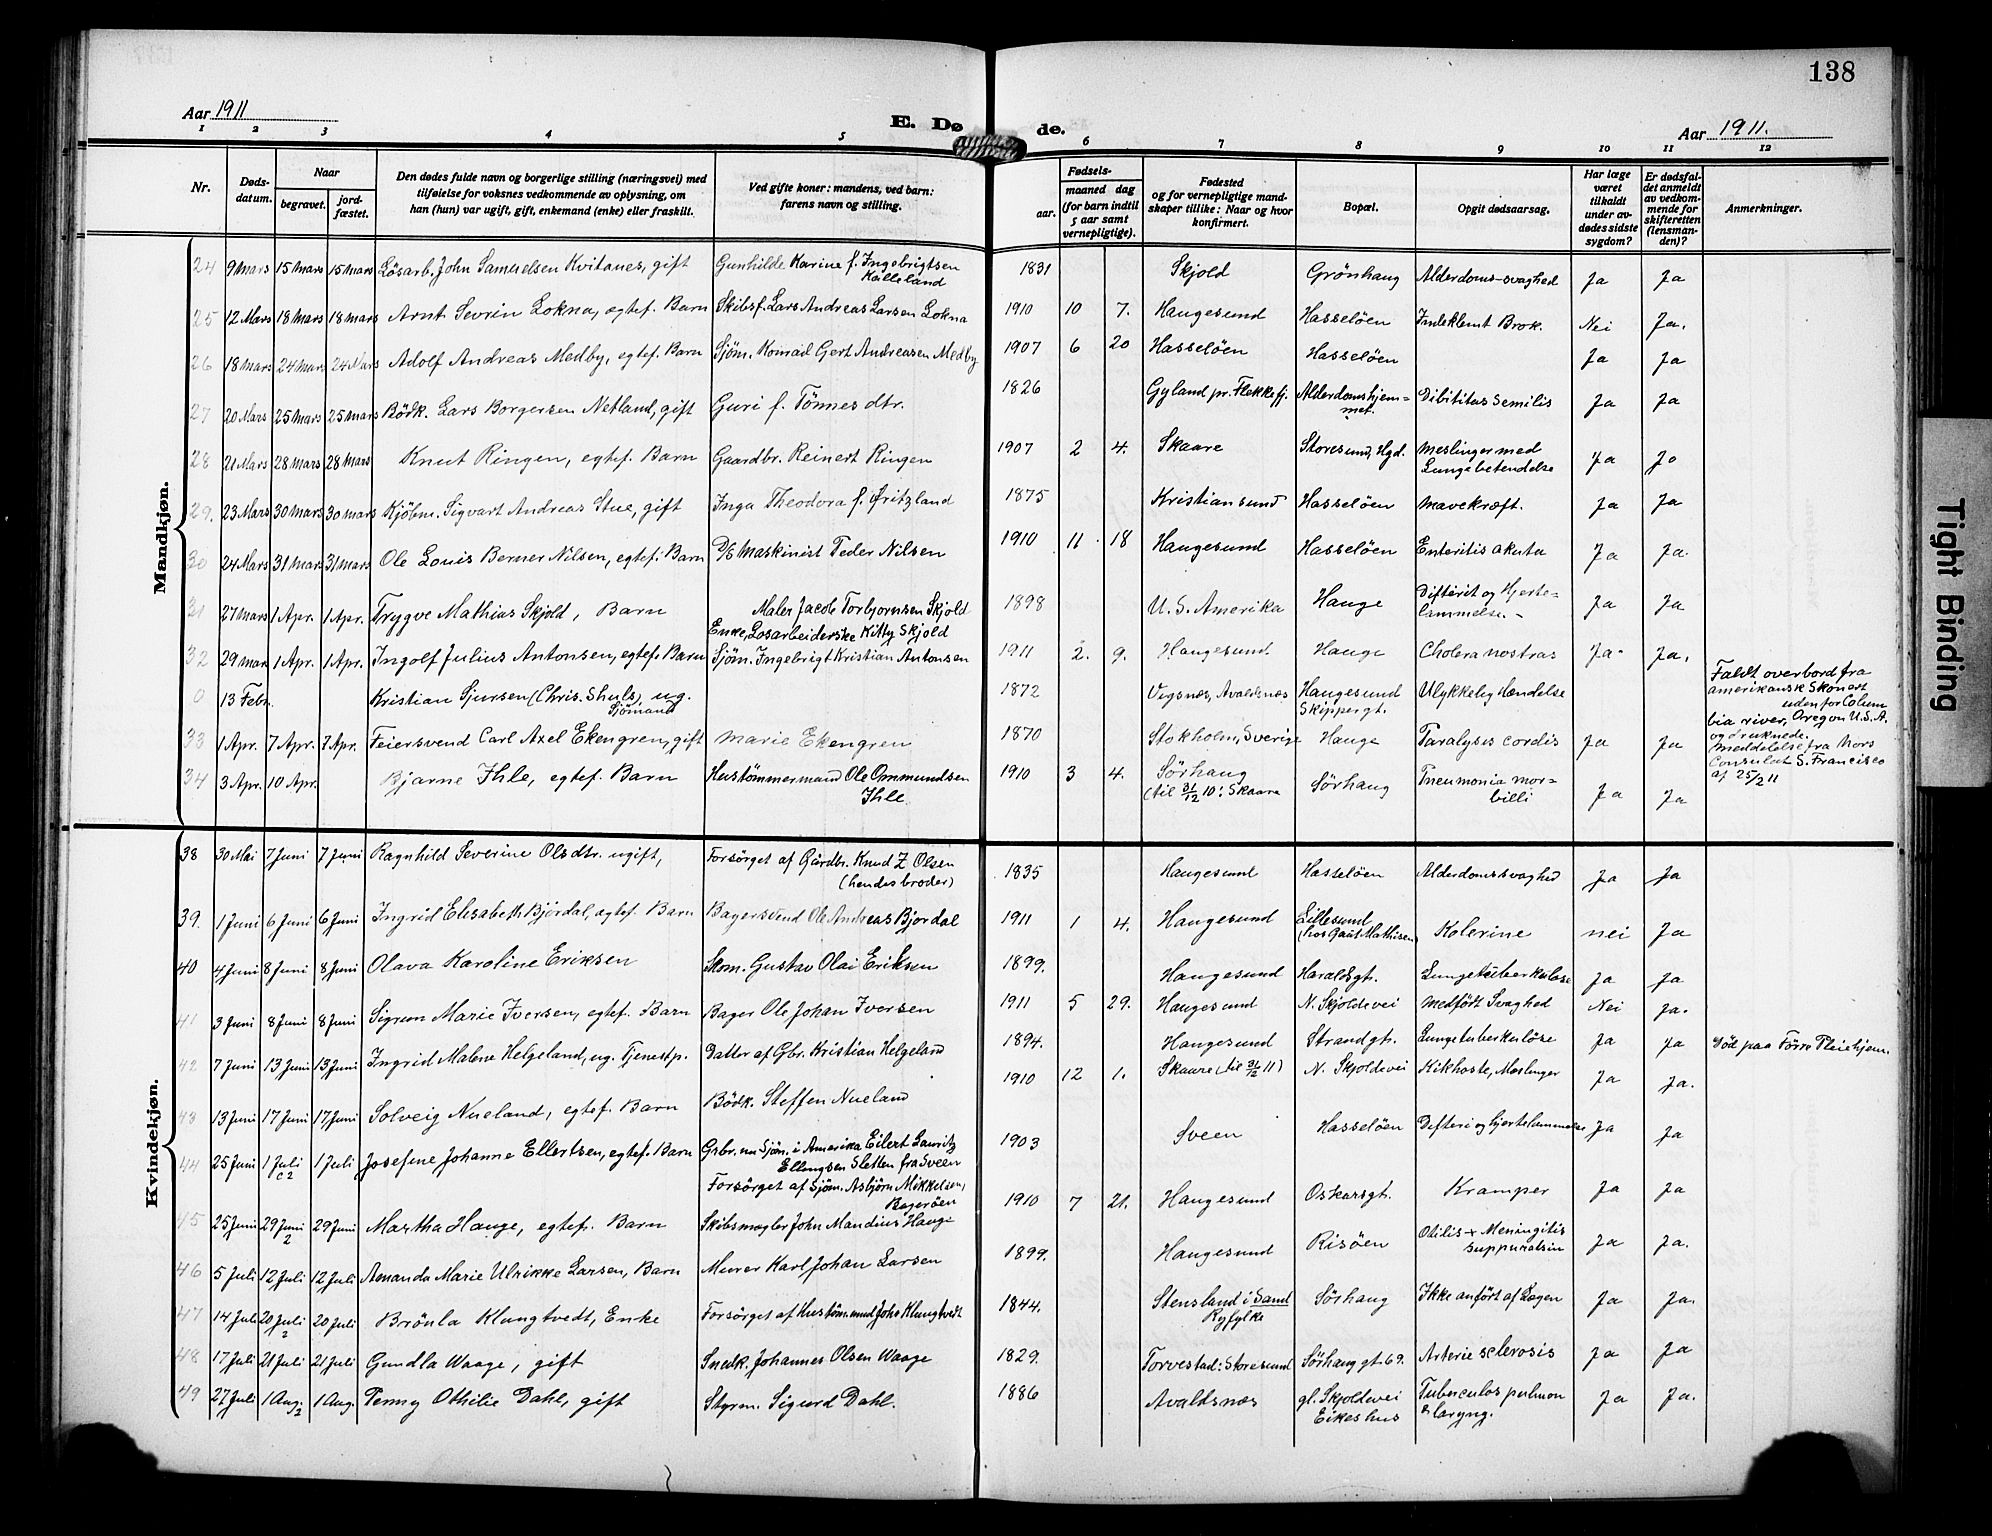 138
Aar 1911
E. Dø de.
Aar 1911.
1 2 3 4 5 6 7 8 9 10 11 12
Nr.
Døds-
datum.
Naar
begravet.
jord-
fæstet.
Den dødes fulde navn og borgerlige stilling (næringsvei) med
tilføielse for voksnes vedkommende av oplysning, om
han (hun) var ugift, gift, enkemand (enke) eller fraskilt.
Ved gifte koner: mandens, ved barn:
farens navn og stilling.
Fødsels-
aar.
maaned dag
(for barn indtil
5 aar samt
vernepligtige).
Fødested
og for vernepligtige mand-
skaper tillike: Naar og hvor
konfirmert.
Bopæl.
Opgit dødsaarsag.
Har læge
været
tilkaldt
under av-
dødes sidste
sygdom?
Er dødsfal-
det anmeldt
av vedkom-
mende for
skifteretten
(lensman-
den)?
Anmerkninger.
Mandkjøn.
24 9 Mars 15 Mars 15 Mars Løsarb. John Samuelsen Kvitanes, gift Gunhilde Karine f. Ingebrigtsen Kalleland 1831 Skjold Grönhaug Alderdoms-svaghed Ja Ja
25 12 Mars 18 Mars 18 Mars Arnt Sevrin Lokna, egtef. Barn Skibsf. Lars Andreas Larsen Lokna 1910 10 7. Haugesund Hasselöen Indeklemt Brok. Nei Ja.
26 18 Mars 24 Mars 24 Mars Adolf Andreas Medby, egtef. Barn Sjöm. Konrad Gert Andreasen Medby 1907 6 20 Hasselöen Hasselöen Ja Ja
27 20 Mars 25 Mars 25 Mars Bödk. Lars Borgersen Netland, gift Guri f. Tönnes dtr. 1826 Gyland pr. Flekkefj. Alderdomshjem=met. Dibititas semilis Ja Ja
28 21 Mars 28 Mars 28 Mars Knut Ringen, egtef. Barn Gaardbr. Reinert Ringen 1907 2 4. Skaare Storesund, Hgd. Meslinger med Lungebetendelse Ja Ja
29. 23 Mars 30 Mars 30 Mars Kjöbm. Sigvart Andreas Stue, gift Inga Theodora f. Fritzland 1875 Kristiansund Hasselöen Mavekræft. Ja Ja
30 24 Mars 31 Mars 31 Mars Ole Louis Berner Nilsen, egtef. Barn D/S Maskinist Peder Nilsen 1910 11 18 Haugesund Hasselöen Enteritis akuta Ja Ja.
31 27 Mars 1 Apr. 1 Apr. Trygve Mathias Skjold, Barn Maler Jacob Torbjornsen Skjold
Enke, Løsarbeiderske Kitty Skjold 1898 U.S. Amerika Hauge Difterit og Hjerte-lammelse.- Ja Ja
32 29 Mar 1 Apr. 1 Apr. Ingolf Julius Antonsen, egtef. Barn Sjöm. Ingebrigt Kristian Antonsen 1911 2. 9. Haugesund Hauge Cholera nostras Ja Ja.
0 13 Febr. Kristian Sjursen (Chris. Shuls) ug. Sjömand 1872 Vigsnæs, Avaldsnæs Haugesund Skippergt. Ulykkelig Hændelse
Faldt overbord fra
amerikansk Skonert
udenfor Colum
bia river, Oregon U.S.A.
og druknede.
Meddelelse fra Nors
Consulat S. Francisco
af 25/2 11
33 1 Apr. 7 Apr. 7 Apr. Feiersvend Carl Axel Ekengren, gift Marie Ekengren 1870 Stokholm, Sverige Hauge Paralysis cordis Ja Ja
34 3 Apr. 10 Apr. Bjarne Ihle, egtef. Barn Hustömmermand Ole Ommundsen Ihle. 1910 3 4. Sörhaug (til 31/12 10: Skaare Sörhaug Pneumonia mor=billi Ja Ja
Kvindekjøn.
38 30 Mai 7 Juni 7 Juni Ragnhild Severine Olsdtr. ugift, Forsörget af Gårdbr. Knud Z Olsen (hendes broder) 1835 Haugesund Hasselöen Alderdomssvaghed Ja Ja
39. 1 Juni 6 Juni 6 Juni Ingrid Elisabeth Björdal, egtef. Barn Bagersvend Ole Andreas Bjordal 1911 1 4. Haugesund Lillesund (hos Gaut Mathisen) Kolerine nei Ja
40 4 Juni 8 Juni 8 Juni Olava Karoline Eriksen Skom. Gustav Olai Eriksen 1899. Haugesund Haraldsgt. Lungetuberkulose Ja Ja
41 3 Juni 8 Juni 8 Juni Sigrun Marie Iversen, egtef. Barn Bager Ole Johan Iversen 1911 5 29. Haugesund N. Skjoldevei Medfödt Svaghed Nei Ja.
42 7 Juni 13 Juni 13 Juni Ingrid Malene Helgeland, ug. Tjenestp. Datter af Gbr. Kristian Helgeland 1894. Haugesund Strandgt. Lungetuberkulöse Ja Ja Död paa Förre Pleiehjem.
43 13 Juni 17 Juni 17 Juni Solveig Nueland, egtef. Barn Bödk. Steffen Nueland 1910 12 1. Skaare (til 31/12 11) N. Skjoldevei Kikhoste, Meslinger Ja Ja.
44 25 Juni 1 Juli 1 Juli Josefine Johanne Ellertsen, egtef. Barn Grbr. nu Sjöm. i Amerika Eilert Lauritz
Ellingsen Sletten fra Sveen
Forsörget af Sjöm. Asbjörn Mikkelsen,
1903 Sveen Hasselöen Difteri og hjertelammelse Ja Ja
45 25 Juni 29 Juni 29 Juni Martha Hauge, egtef. Barn Skibsmægler John Mandius Hauge 1910 7 21. Haugesund Oskarsgt. Kramper Ja Ja
46 5 Juli 12 Juli 12 Juli Amanda Marie Ulrikke Larsen, Barn Murer Karl Johan Larsen 1899. Haugesund Risöen Otilis + Meningitis suppuratsin Ja Ja.
47 14 Juli 20 Juli 20 Juli Brönla Klungtvedt, Enke Forsörget af Hustöm. mnd John Klungtvedt 1844. Stensland i Sand Ryfylke Sörhaug Ikke anfört af Lægen Ja Ja.
48 17 Juli 21 Juli 21 Juli Gundla Waage, gift Snedk. Johannes Olsen Waage 1829. Torvestad: Storesund Sörhauggt. 69. Arterie sclerosis Ja Ja
49 27 Juli 1 Aug. 1 Aug. Penny Othilie Dahl, gift Styrm. Sigurd Dahl. 1886 Avaldsnæs gl. Skjoldevei Eikeshus Tuberculos pulmon & laryng. Ja Ja.
Tight Binding